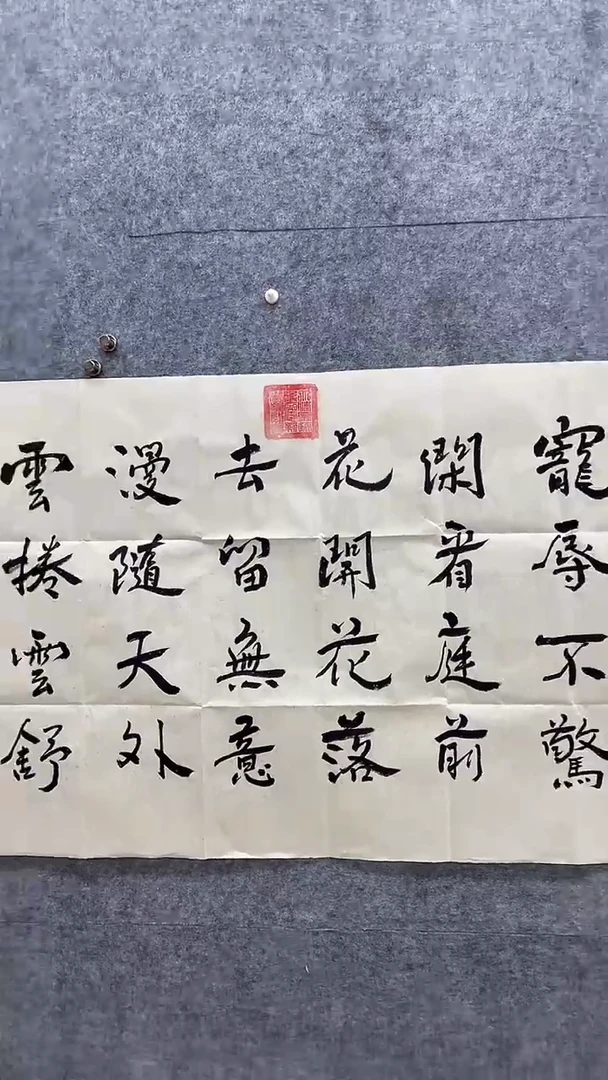 寵辱不驚
閑看庭前
花開花落
去留無意
漫隨天外
雲捲雲舒